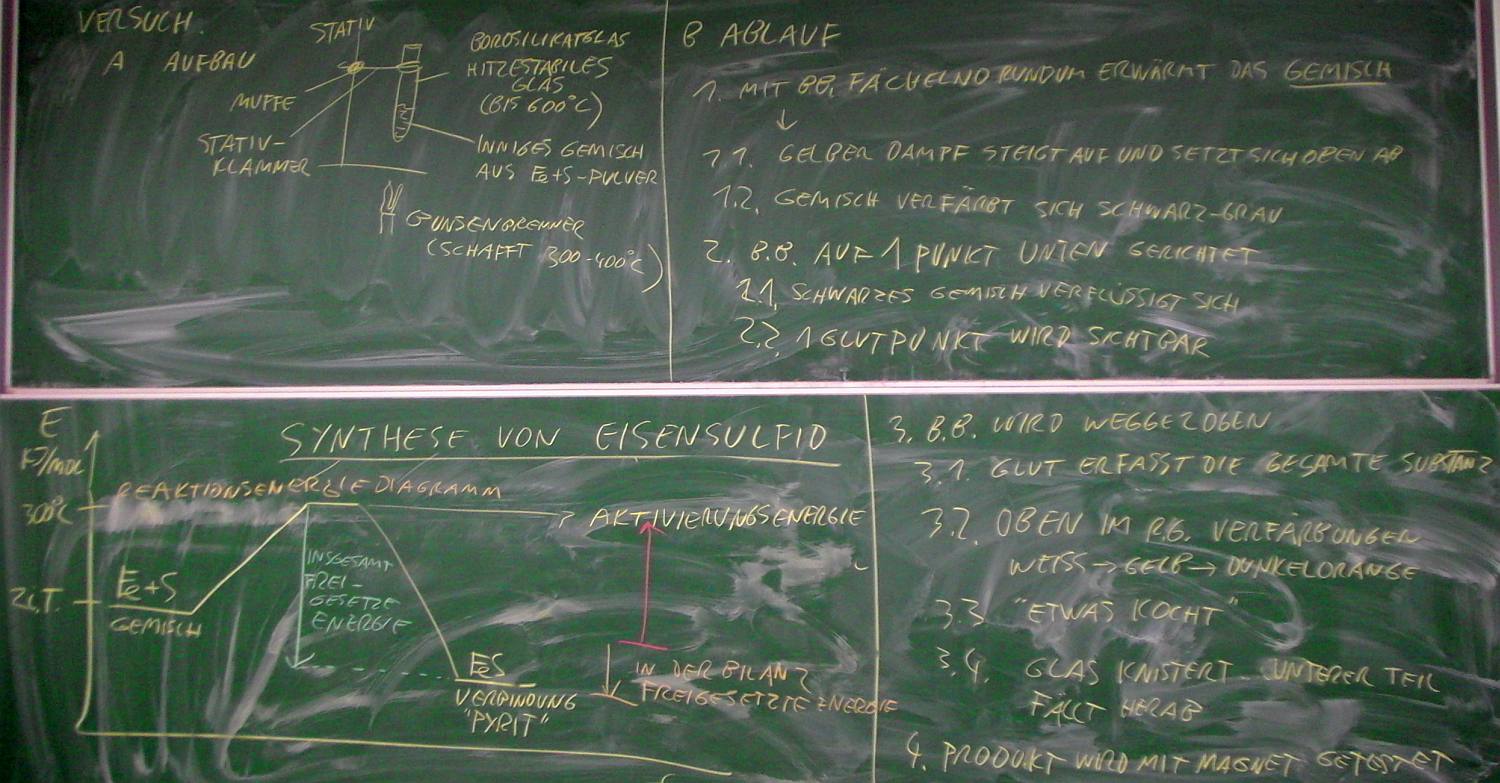 VERSUCH.
A AUFBAU
STATIV
MUFFE
STATIV-
KLAMMER
BOROSILIKATGLAS
HITZESTABILES
GLAS
(BIS 600°C)
INNIGES GEMISCH
AUS Fe+S-PULVER
BUNSENBRENNER
(SCHAFFT 300-400°C)
B ABLAUF
1. MIT BB. FÄCHELND RUNDUM ERWÄRMT DAS GEMISCH
↓
1.1. GELBER DAMPF STEIGT AUF UND SETZT SICH OBEN AB
1.2. GEMISCH VERFÄRBT SICH SCHWARZ-GRAU
2. B.B. AUF 1 PUNKT UNTEN GERICHTET
2.1. SCHWARZES GEMISCH VERFLÜSSIGT SICH
2.2. 1 GLUTPUNKT WIRD SICHTBAR
SYNTHESE VON EISENSULFID
E
KJ/mol
REAKTIONSENERGIEDIAGRAMM
300°C
Z.T.
Fe+S
GEMISCH
INSGESAMT
FREI-
GESETZE
ENERGIE
AKTIVIERUNGSENERGIE
FeS
VERBINDUNG
"PYRIT"
IN DER BILANZ
FREIGESETZTE ENERGIE
3. B.B. WIRD WEGGEZOGEN
3.1. GLUT ERFASST DIE GESAMTE SUBSTANZ
3.2. OBEN IM R.G. VERFÄRBUNGEN
WEISS → GELB → DUNKELORANGE
3.3 "ETWAS KOCHT"
3.4. GLAS KNISTERT - UNTERER TEIL
FÄLLT HERAB
4. PRODUKT WIRD MIT MAGNET GETESTET